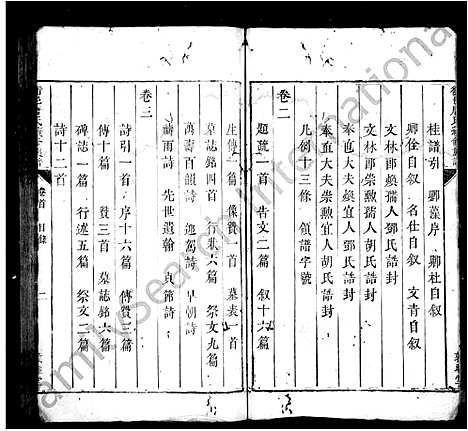 桂譜引 卿藻序 卿杜自叙
卿佺自叙 名仕自叙 文青自叙
文林郎煥孺人鄧氏誥封
文林郎崇勲孺人胡氏誥封
奉直大夫煥宜人鄧氏誥封
奉直大夫崇勲宜人胡氏誥封
凡例十三條 領譜字號
卷二
題疏一首 告文二篇 叙十六篇
生傳二篇 像贊一首 墓表一首
墓誌銘四首 行狀六篇 祭文九篇
禱雨詩 先世遺翰 貞節詩
卷三
詩引一首 序十六篇 傳贊三篇
傳十篇 贊三首 墓誌銘六篇
碑誌一篇 行述五篇 祭文二篇
詩十二首
卷首 目錄 二
familysearch international